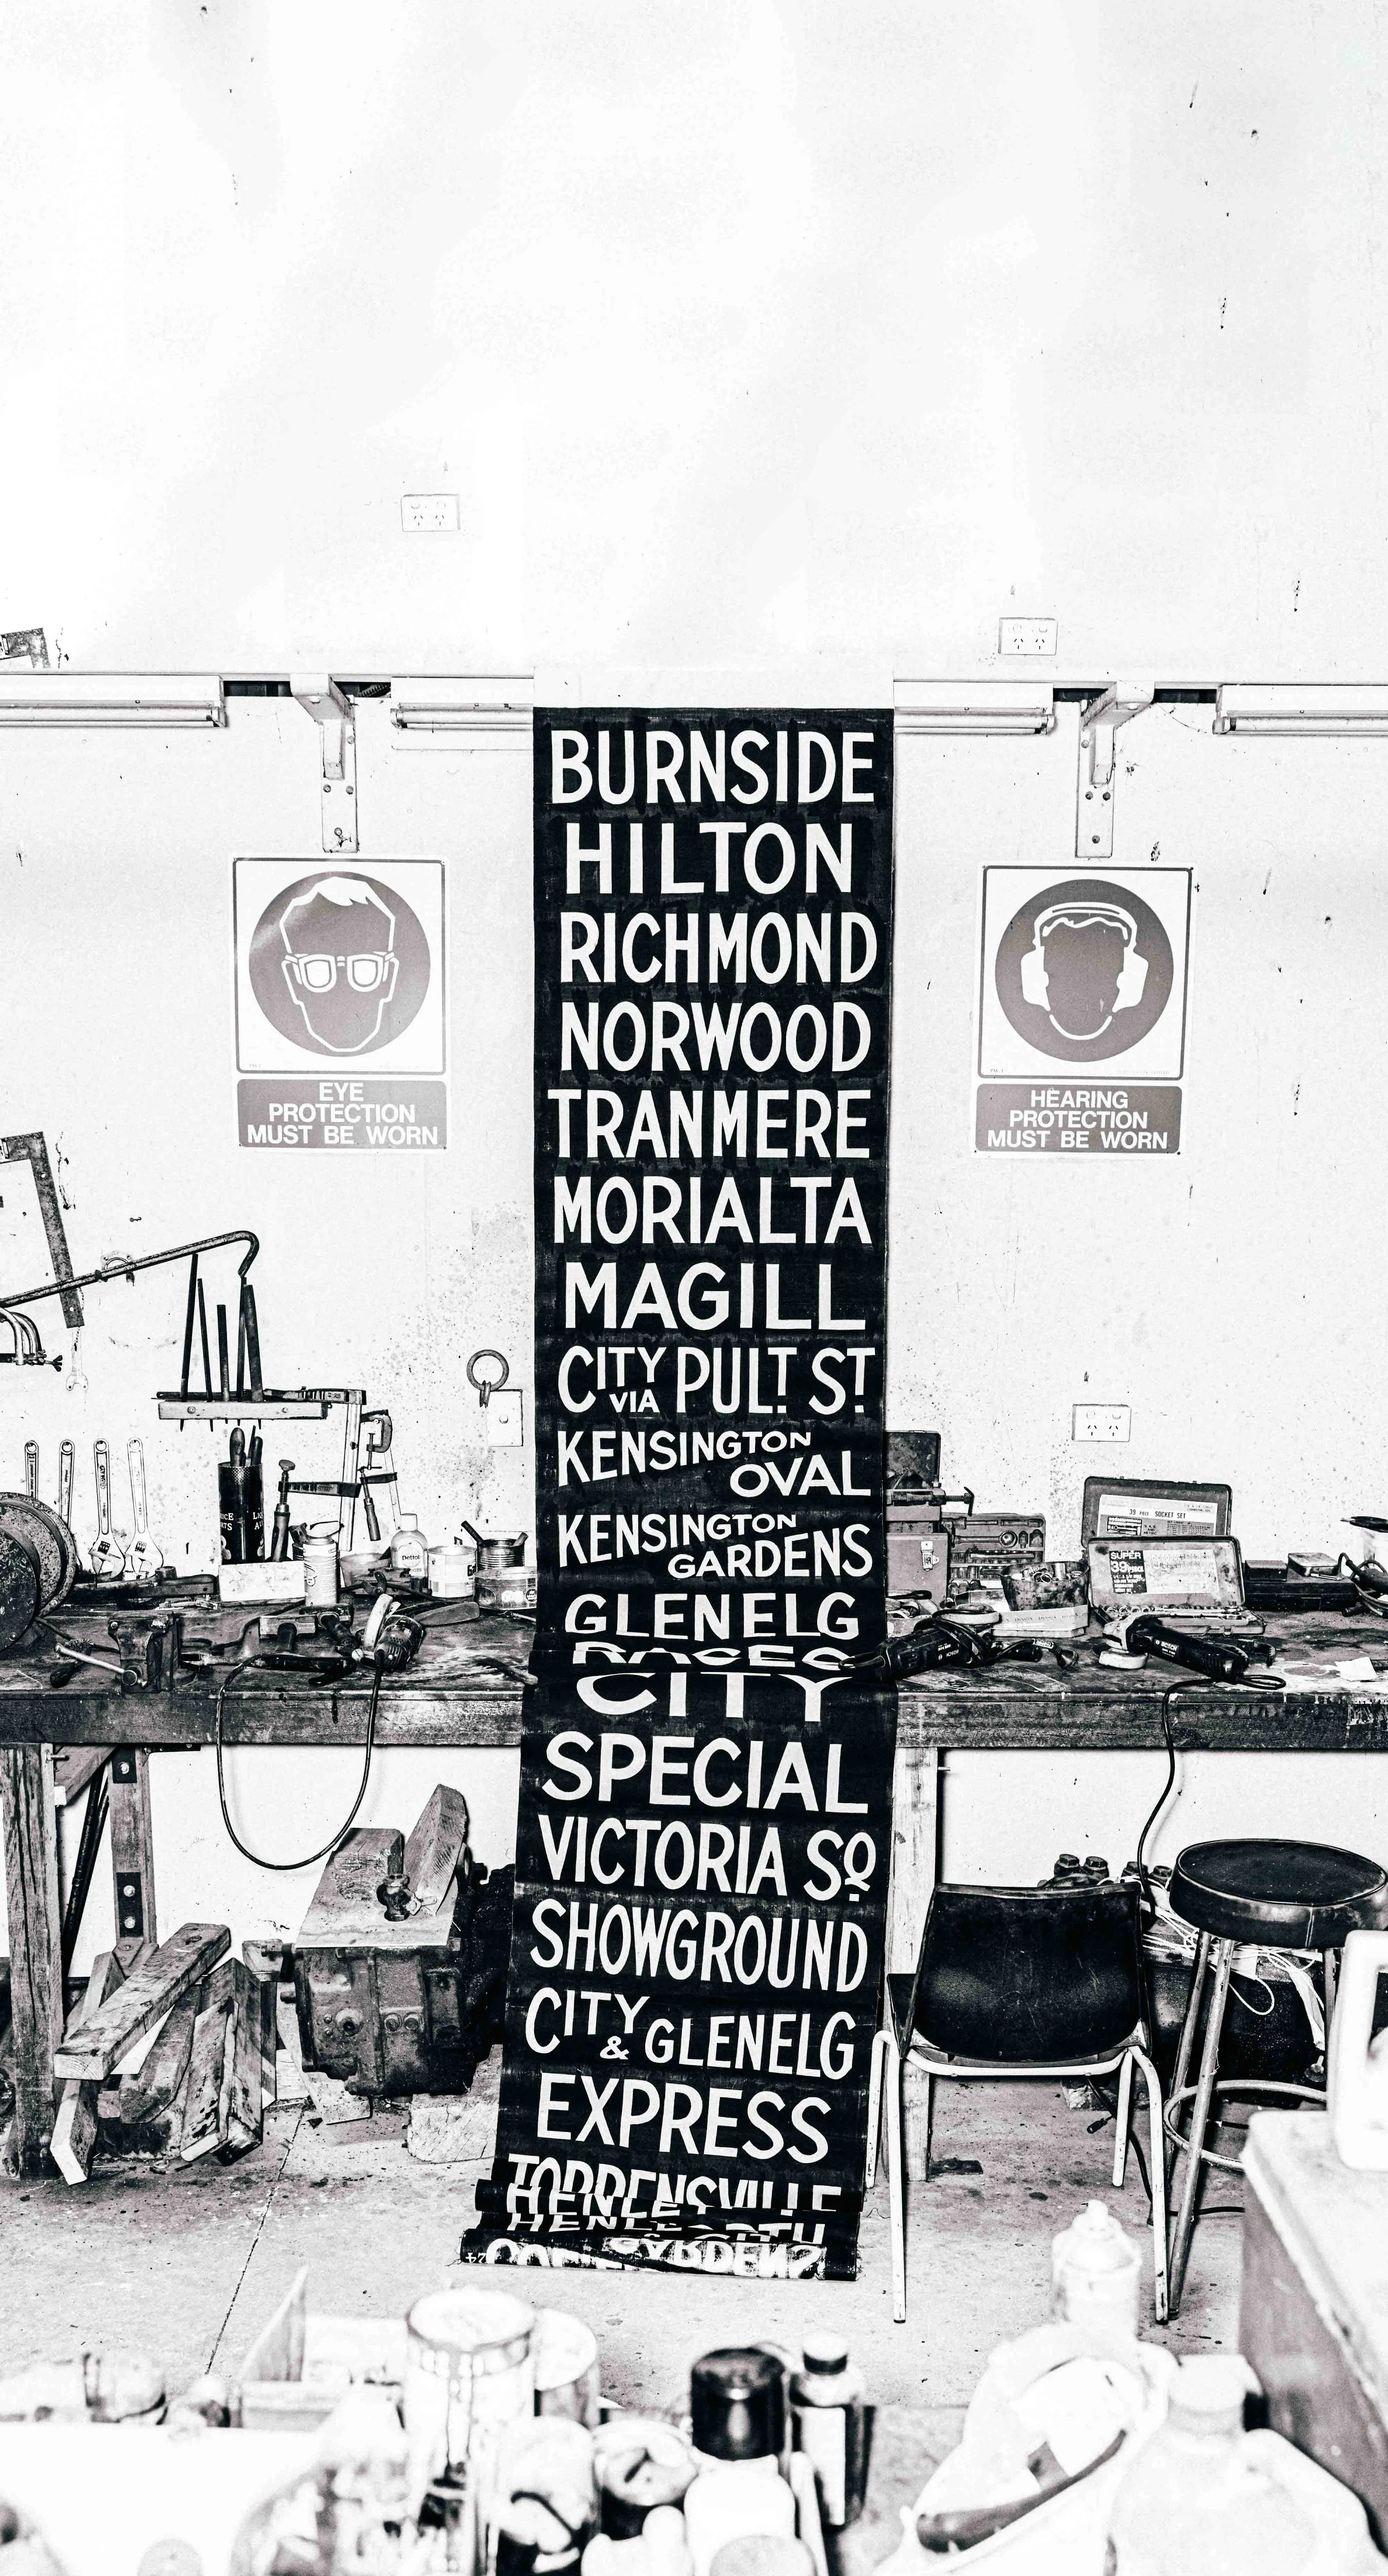 BURNSIDE
HILTON
RICHMOND
NORWOOD
TRANMERE
MORIALTA
MAGILL
CITY VIA PULT. ST.
KENSINGTON
OVAL
KENSINGTON
GARDENS
GLENELG
RACES
CITY
SPECIAL
VICTORIA SQ.
SHOWGROUND
CITY & GLENELG
EXPRESS
TORRENSVILLE
GARDENS
EYE
PROTECTION
MUST BE WORN
HEARING
PROTECTION
MUST BE WORN
Dettol
39 PIECE SOCKET SET
SUPER
39 PIECE